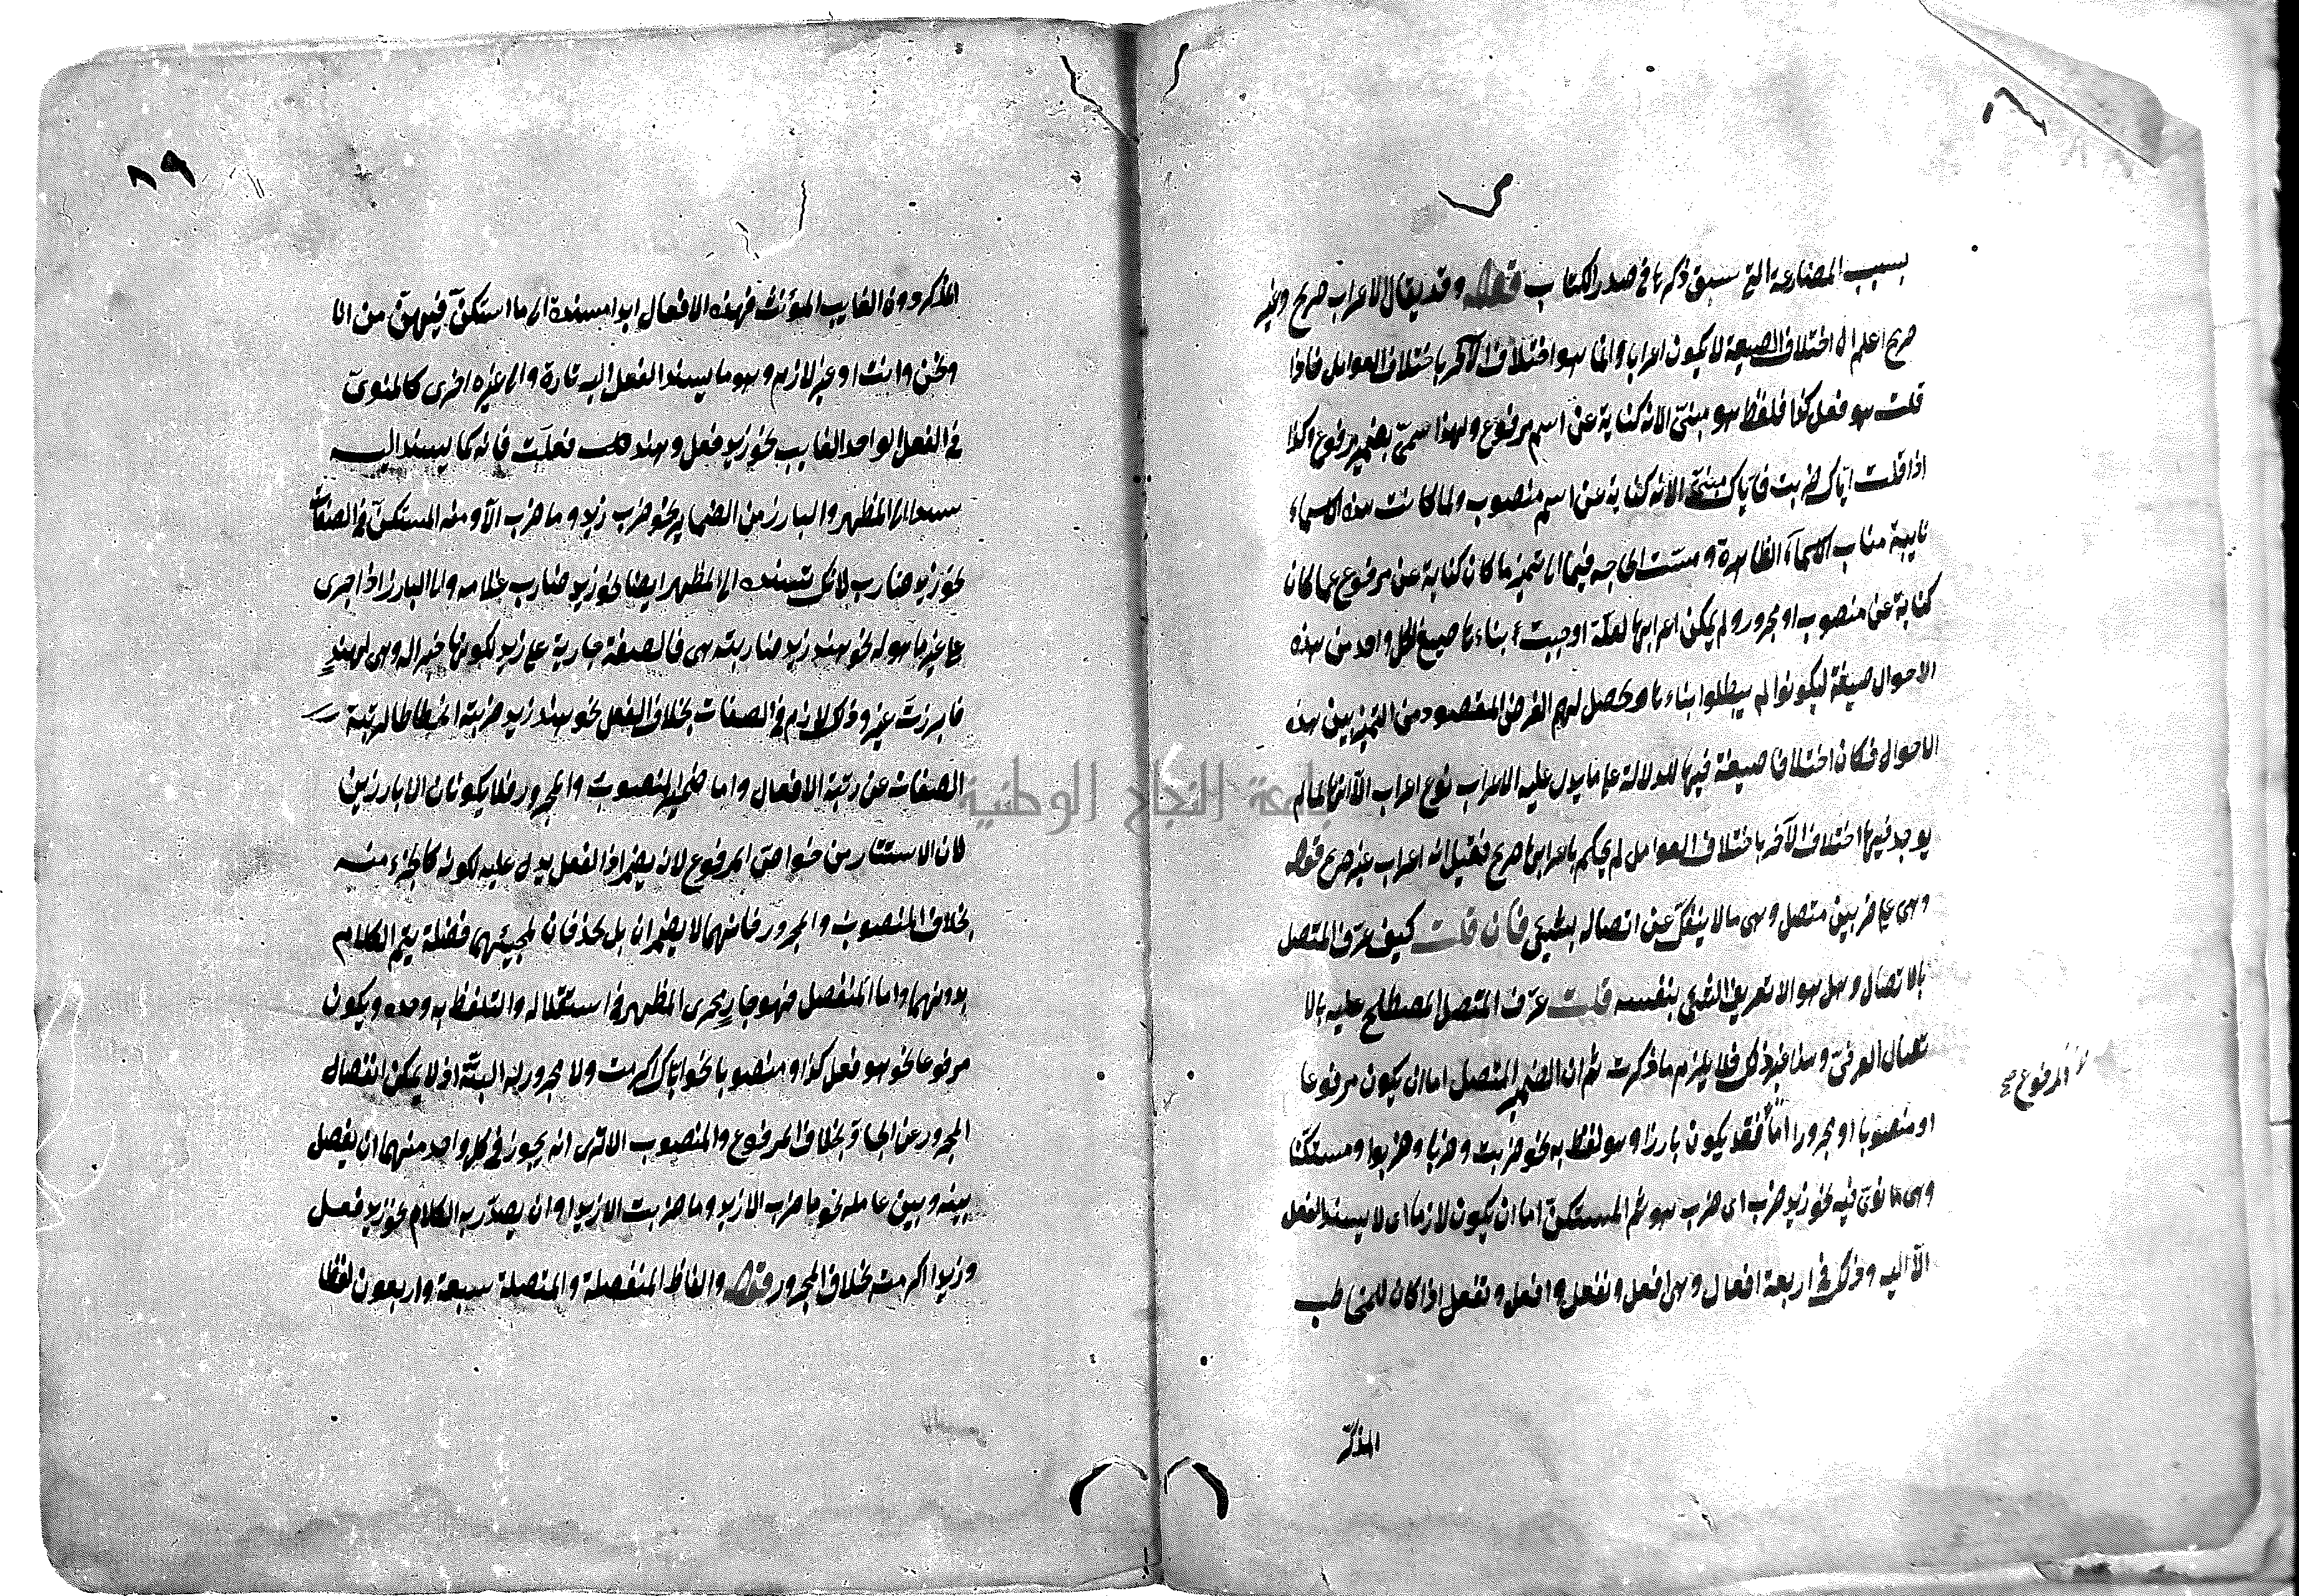 بسبب المضارعة التي سبق ذكرها في صدر الكتاب قوله وقد يقال الاعراب صريح وغير
صريح اعلم ان اختلاف الصيغة لا يكون اعرابا وانما هو اختلاف الآخر باختلاف العوامل فاذا
قلت هو فعل كذا فلفظ هو مبنيّ الا انه كناية عن اسم مرفوع ولهذا سمّي بضمير مرفوع وكذا
اذا قلت اياك ضربت فاياك مبنيّ الا انه كناية عن اسم منصوب ولما كانت هذه الاسماء
نايبة مناب الاسماء الظاهرة ومست الحاجة فيها الى تميز ما كان كناية عن مرفوع عما كان
كناية عن منصوب او مجرور ولم يمكن اعرابها لعلّة اوجبت بناءها صيغ لكل واحد من هذه
الاحوال صيغة ليكونوا لم يبطلوا بناءها وحصل لهم الغرض المقصود من التميز بين هذه
الاحوال فكان اختلاف صيغة فيها للدلالة على ما يدل عليه الاعراب نوع اعراب الا انها لما لم
يوجد فيها اختلاف الآخر باختلاف العوامل لم يحكم باعرابها صريح فقيل انه اعراب غير صريح قوله
وهي على ضربين متصل وهي ما لا ينفكّ عن اتصاله بشيء فان قلت كيف عرّف المتصل
بالاتصال وهل هو الا تعريف الشيء بنفسه قلت عرّف المتصل المصطلح عليه بالا
تصال العرفيّ وهذا غير ذلك فلا يلزم ما ذكرت ثم ان الضمير المتصل اما ان يكون مرفوعا
او منصوبا او مجرورا امّا فقد يكون بارزا وهو لفظ به نحو ضربت وضربا وضربوا ومستكنّا
المرفوع صح
وهي ما نوي فيه نحو زيد ضرب اي ضرب هو ثم المستكنّ اما ان يكون لازما اي لا يسند الفعل
الا اليه وذلك في اربعة افعال وهي افعل ونفعل وافعل وتفعل اذا كان للمخاطب
المذكّر
١٩
المذكر دون الغايب المؤنث فهذه الافعال ابدا مسندة الى ما استكنّ فيهنّ من انا
ونحن وانت او غير لازم وهو ما يسند الفعل اليه تارة والى غيره اخرى كالمنويّ
في الفعل الواحد الغايب نحو زيد فعل وهند فعلت فانه كما يسند اليه
يسند الى المظهر والبارز من الضماير نحو ضرب زيد وما ضرب الا ومنه المستكنّ في الصفات
نحو زيد ضارب لانك تسنده الى المظهر ايضا نحو زيد ضارب غلامه واما البارز اذا جرى
على غير ما هو له نحو هند زيد ضاربته هي فالصفة جارية على زيد لكونها خبرا له وهي لهند
فابرزت غير وذلك لازم في الصفات بخلاف الفعل نحو هند زيد ضربته انحطاطا لرتبة
الصفات عن رتبة الافعال واما ضمير المنصوب والمجرور فلا يكونان الا بارزين
لان الاستتار من خواص المرفوع لان يضمر اذ الفعل يدل عليه لكونه كالجزء منه
بخلاف المنصوب والمجرور فانهما لا يضمران بل يحذفان لمجيئهما فضلة يتم الكلام
بدونهما واما المنفصل فهو جار مجرى المظهر في استقلاله والتلفظ به وحده ويكون
مرفوعا نحو هو فعل كذا ومنصوبا نحو اياك اكرمت ولا مجرور له البتّة اذ لا يمكن انفصال
المجرور عن الجار بخلاف المرفوع والمنصوب الا ترى انه يجوز في كل واحد منهما ان يفصل
بينه وبين عامله نحو ما ضرب الا زيد وما ضربت الا زيدا وان يصدّر به الكلام نحو زيد فعل
وزيدا اكرمت بخلاف المجرور قوله والفاظ المنفصلة والمتصلة سبعة واربعون لفظا
جامعة النجاح الوطنية